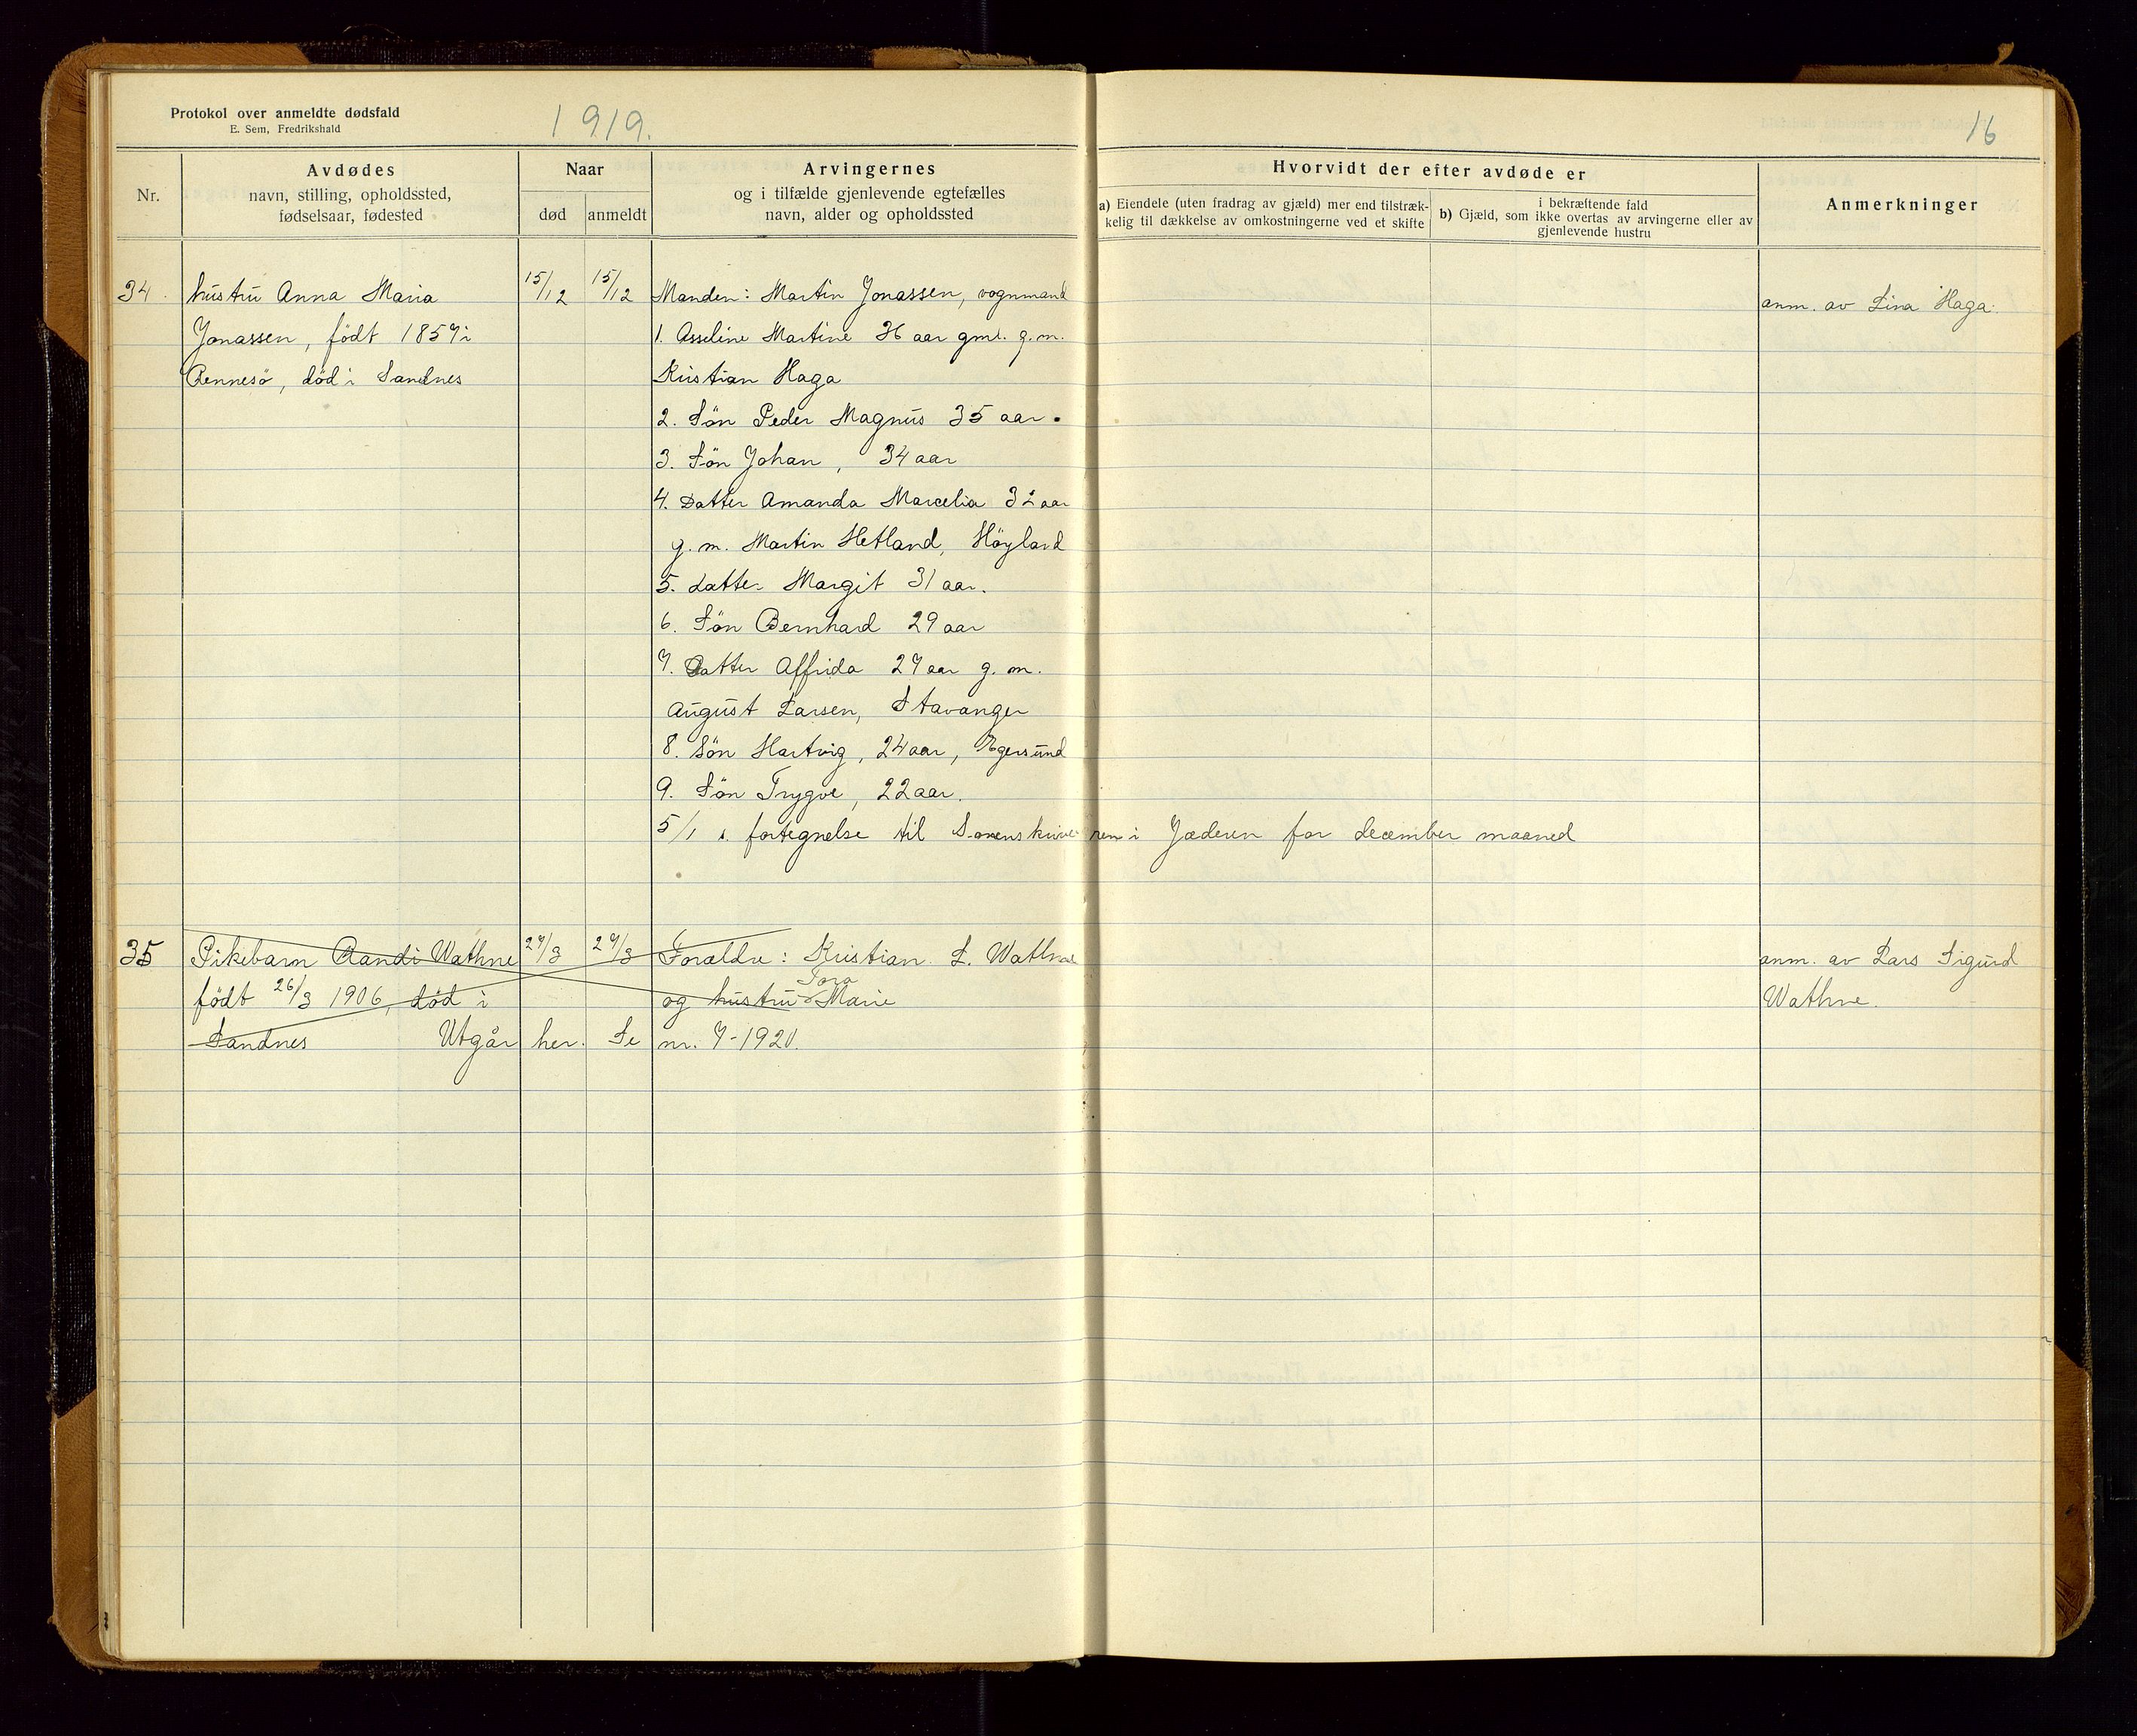 Protokol over anmeldte dødsfald
E. Sem, Fredrikshald
1919.
16
Nr.
Avdødes
navn, stilling, opholdssted,
fødselsaar, fødested
Naar
død
anmeldt
Arvingernes
og i tilfælde gjenlevende egtefælles
navn, alder og opholdssted
Hvorvidt der efter avdøde er
a) Eiendele (uten fradrag av gjæld) mer end tilstræk-
kelig til dækkelse av omkostningerne ved et skifte
i bekræftende fald
b) Gjæld, som ikke overtas av arvingerne eller av
gjenlevende hustru
Anmerkninger
34. hustru Anna Maria 15/12 15/12 Manden: Martin Jonassen, vognmand anm. av Lina Haga.
Jonassen, födt 1857 i 1. Asseline Martine 36 aar gml. g.m.
Rennesö, död i Sandnes Kristian Haga
2. Sön Peder Magnus 35 aar.
3. Sön Johan, 34 aar
4. Datter Amanda Marcelia 32 aar
g. m. Martin Hetland, Höyland
5. datter Margit 31 aar.
6. Sön Bernhard 29 aar
7. Datter Affrida 27 aar g. m.
August Larsen, Stavanger
8. Sön Hartvig, 24 aar, Egersund
9. Sön Trygve, 22 aar.
5/1 s. fortegnelse til Sorenskriveren i Jæderen for december maaned
35 Pikebarn Randi Wathne 27/3 27/3 Foraldre: Kristian L. Wathne anm. av Lars Sigurd
födt 26/3 1906, död i og hustru Tora Marie Wathne.
Sandnes Utgår her. Se nr. 7-1920.